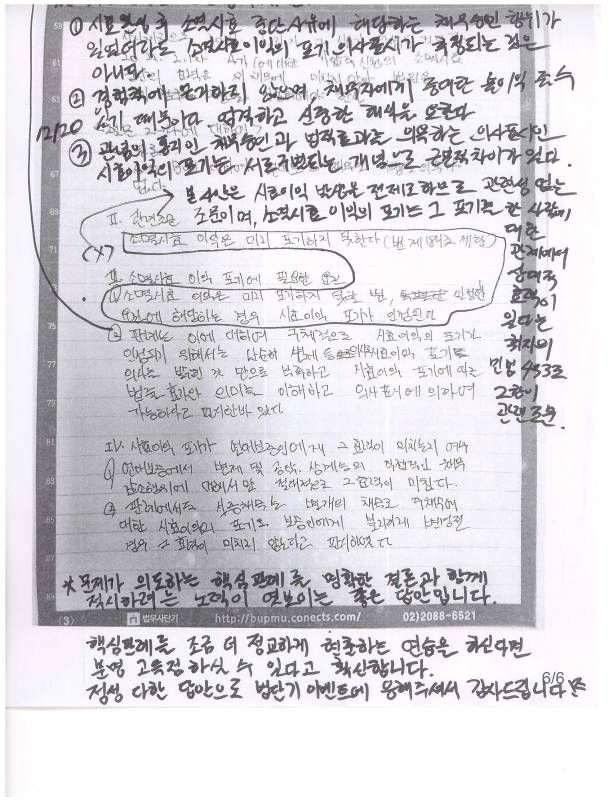 ① 시효완성 후 소멸시효 중단사유에 해당하는 채무승인 행위가
있었더라도 소멸시효이익의 포기 의사표시가 추정되는 것은
아니다.
② 경험칙에 근거하지 않으며, 채무자에게 중대한 불이익
있기 때문이다 엄격하고 신중한 해석을 요한다
12/20
③ 관념의 통지인 채무승인과 법적효과를 의욕하는 의사표시인
시효이익의 포기는 서로구별되는 개념으로 근본적차이가 있다.
본사안은 시효이익 발생을 전제로하므로 관련성 없는
조문이며, 소멸시효 이익의 포기는 그 포기를 한 사람에
대한
관계에서
상대적
효력이
있다는
취지의
민법 433조
2항이
관련조문.
II. 관련조문
소멸시효 이익은 미리 포기하지 못한다 (민법 제184조 제1항)
III. 소멸시효 이익 포기에 필요한 요건
① 소멸시효 이익은 미리 포기하지 못할 뿐, 일정한
요건에 해당하는 경우 시효이익 포기가 인정된다
② 판례는 이에 대하여 구체적으로 시효이익의 포기가
인정되기 위해서는 단순히 시효이익 포기를
의사를 밝힌 것 만으로 부족하고 시효이익 포기에 따른
법률 효과와 의미를 이해하고 의사표시에 의하여
가능하다고 판시한바 있다
IV. 시효이익 포기가 연대보증인에게 그 효력이 미치는지 여부
① 연대보증에서 변제 및 공탁, 상계등의 직접적인 채무
대해서만 절대적으로 그 효력이 미친다.
② 판례에서는 보증채무는 별개의 채무로 주채무에
대한 시효이익의 포기로 보증인에게 불리하게 변경된
경우 그 효력이 미치지 않는다고 판시하였다
* 문제가 의도하는 핵심판례를 명확한 결론과 함께
적시하려는 노력이 엿보이는 좋은 답안입니다.
〈3〉 법무사단기 http://bupmu.conects.com/ 02)2088-6521
핵심판례를 조금 더 정교하게 현출하는 연습을 하신다면
분명 고득점 하실 수 있다고 확신합니다.
정성 다한 답안으로 법단기 이벤트에 응해주셔서 감사드립니다
6/6
59
61
67
69
71
73
75
77
79
81
83
85
87
89